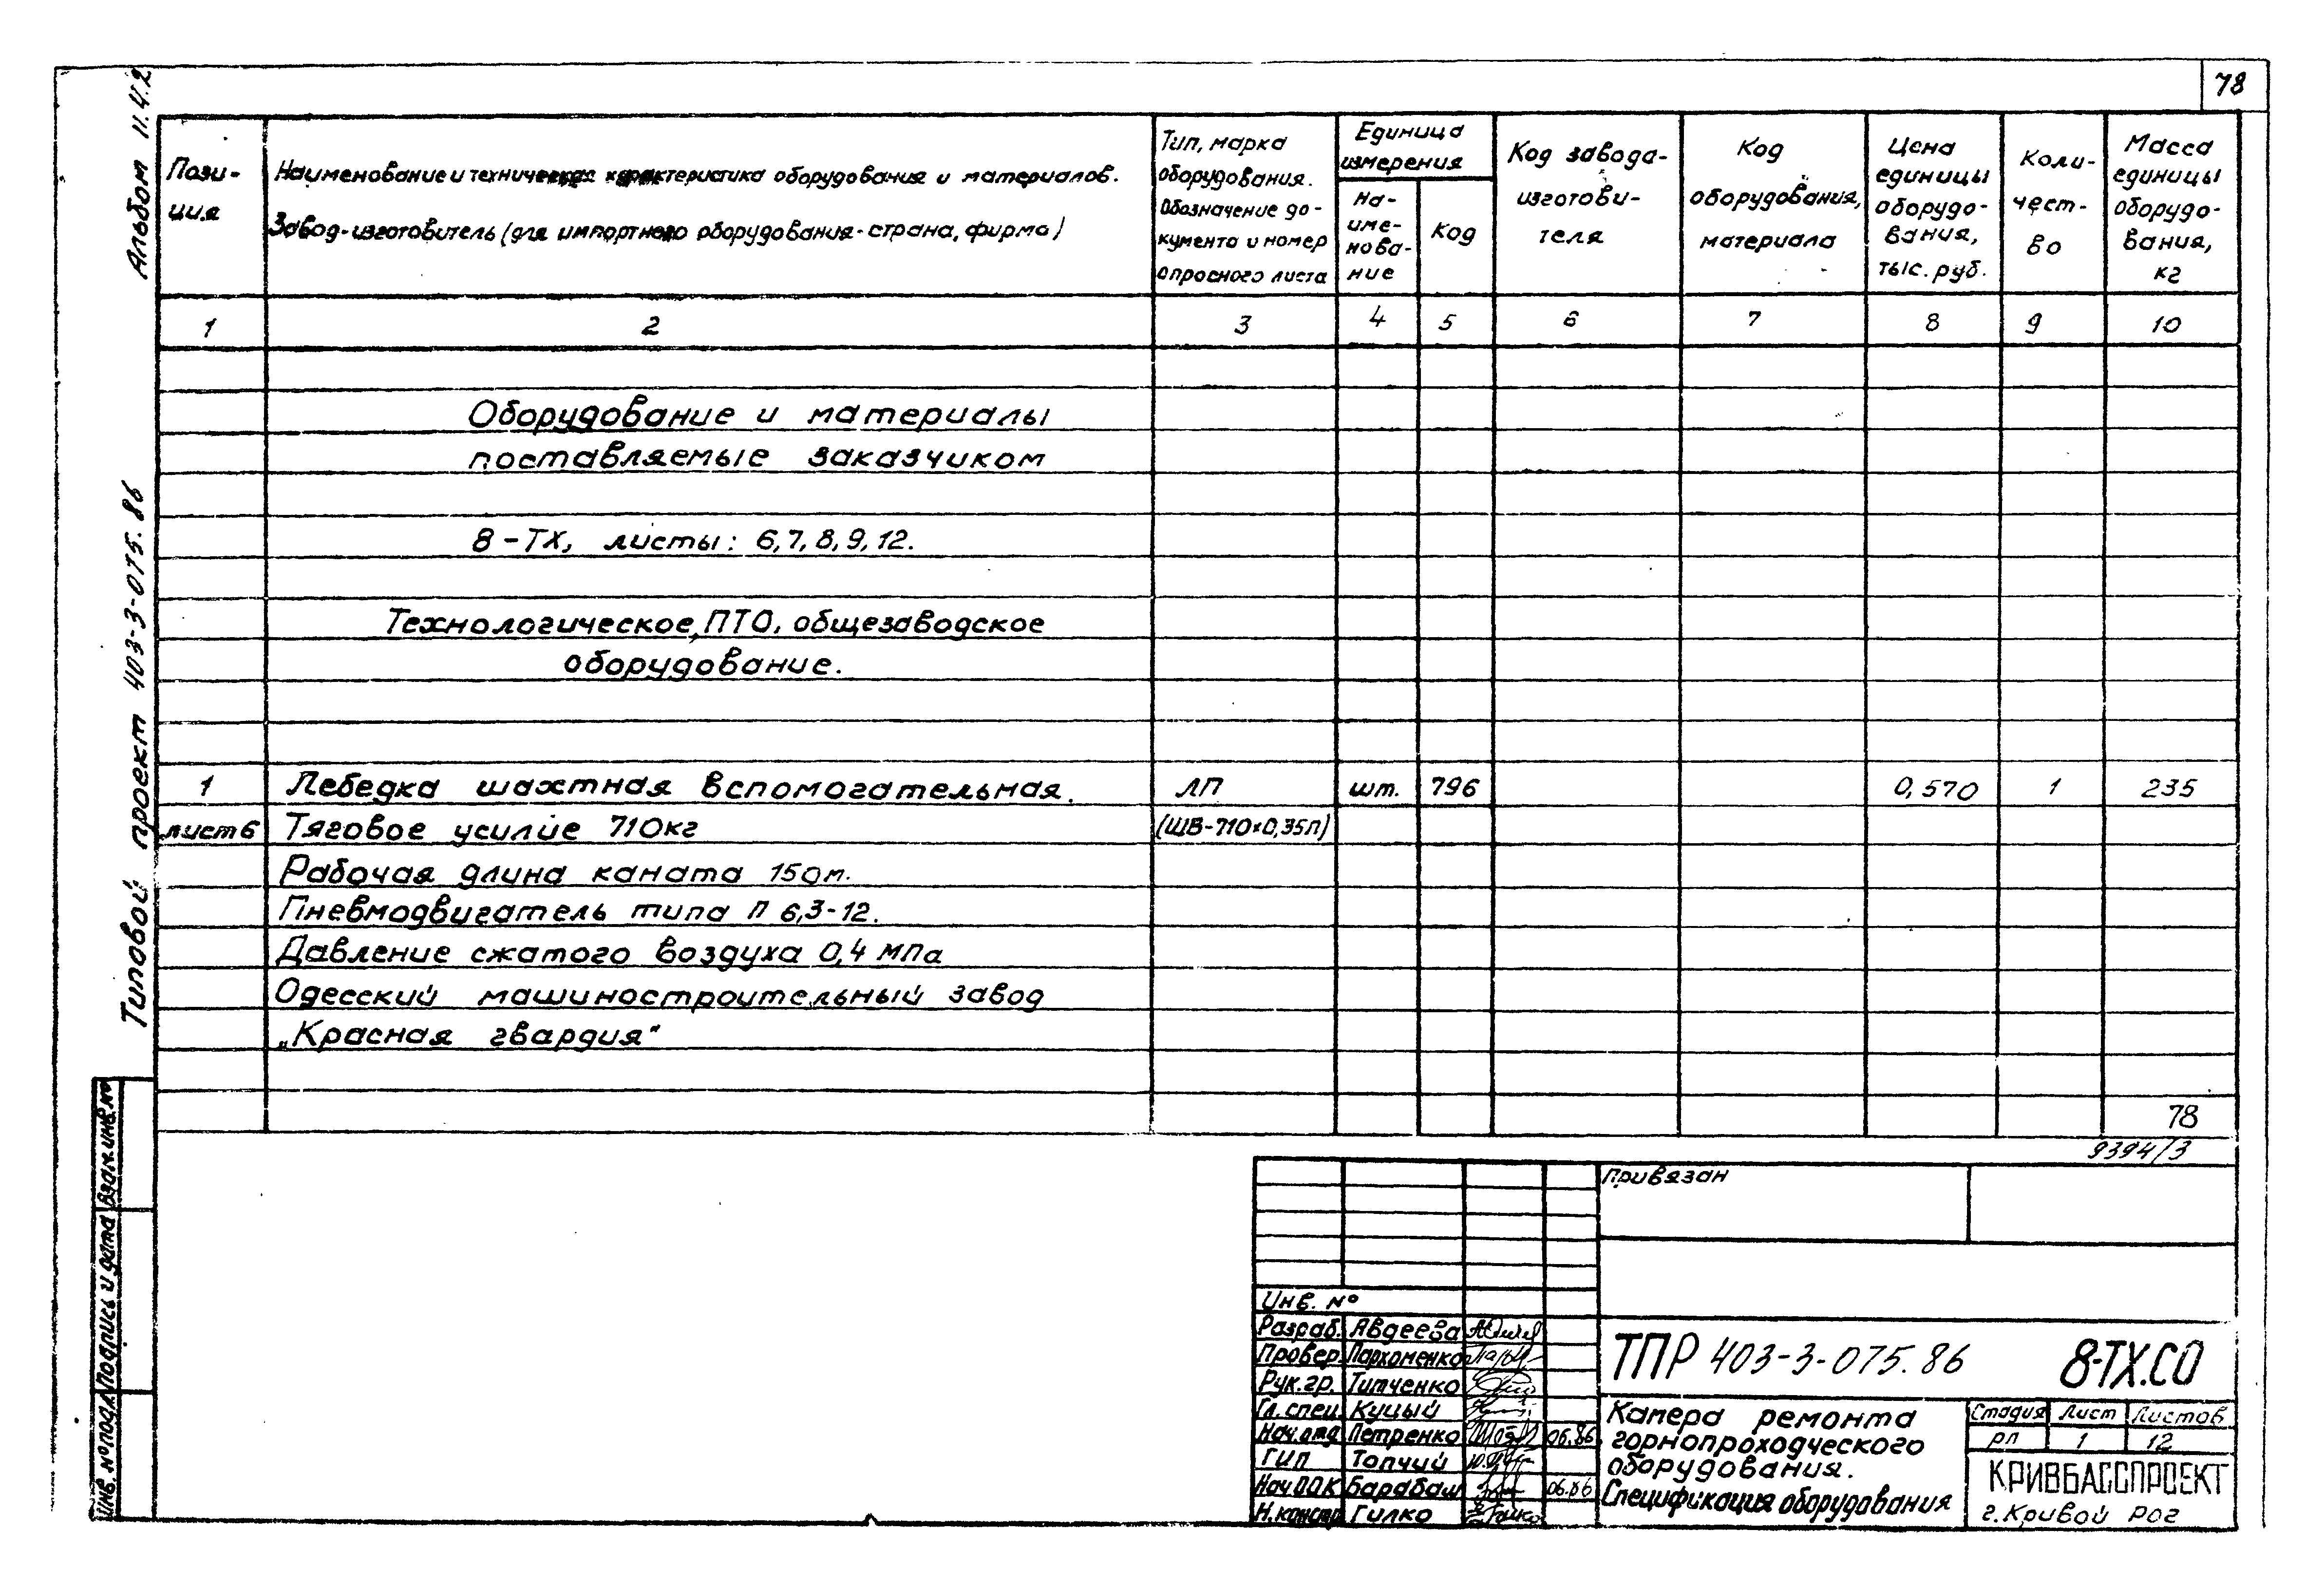 78
Альбом 11.4.2
Типовой проект 403-3-075.86
Пози-
ция
Наименование и техническая характеристика оборудования и материалов.
Завод-изготовитель (для импортного оборудования-страна, фирма)
Тип, марка
оборудования.
Обозначение до-
кумента и номер
опросного листа
Единица
измерения
На-
име-
нова-
ние
Код
Код завода-
изготови-
теля
Код
оборудования,
материала
Цена
единицы
оборудо-
вания,
тыс. руб.
Коли-
чест-
во
Масса
единицы
оборудо-
вания,
кг
1 2 3 4 5 6 7 8 9 10
Оборудование и материалы
поставляемые заказчиком
8-ТХ, листы: 6,7,8,9,12.
Технологическое, ПТО, общезаводское
оборудование.
1 Лебедка шахтная вспомогательная. ЛП шт. 796 0,570 1 235
лист 6 Тяговое усилие 710кг (ШВ-710×0,35П)
Рабочая длина каната 150м.
Пневмодвигатель типа П 6,3-12.
Давление сжатого воздуха 0,4 МПа
Одесский машиностроительный завод
„Красная гвардия"
78
9394/3
Инв. № подл. Подпись и дата Взам. инв. №
Привязан
Инв. №
Разраб. Авдеева
Провер. Пархоменко
Рук.гр. Титченко
Гл. спец. Куцый
Нач.отд Петренко 06.86
ГИП Топчий
Нач ООК Барабаш 06.86
Н.контр Гилко
ТПР 403-3-075.86 8-ТХ.СО
Камера ремонта
горнопроходческого
оборудования.
Спецификация оборудования
Стадия Лист Листов
РП 1 12
КРИВБАССПРОЕКТ
г.Кривой Рог